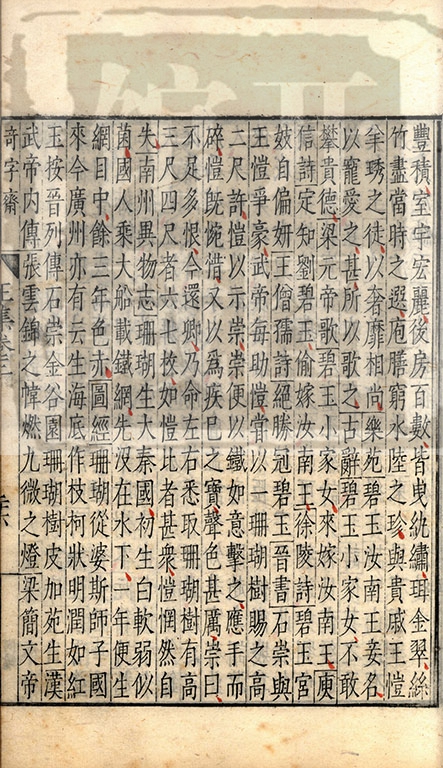 豐積室宇宏麗後房百數皆曳紈繡珥金翠絲
竹盡當時之選庖膳窮水陸之珍與貴戚王愷
羊琇之徒以奢靡相尚樂苑碧玉汝南王妾名
以寵愛之甚所以歌之古辭碧玉小家女不敢
攀貴德梁元帝歌碧玉小家女來嫁汝南王庾
信詩定知劉碧玉偷嫁汝南王徐陵詩碧玉宮
妓自偏妍王僧孺詩絕勝冠碧玉晉書石崇與
王愷爭豪武帝每助愷嘗以一珊瑚樹賜之高
二尺許愷以示崇崇便以鐵如意擊之應手而
碎愷旣惋惜又以爲疾巳之寶聲色甚厲崇曰
不足多恨今還卿乃命左右悉取珊瑚樹有高
三尺四尺者六七枚如愷比者甚衆愷惘然自
失南州異物志珊瑚生大秦國初生白軟弱似
菌國人乘大船載鐵網先沒在水下一年便生
網目中餘三年色赤圖經珊瑚從婆斯師子國
來今廣州亦有云生海底作枝柯狀明潤如紅
玉按晉列傳石崇金谷園珊瑚樹皮加苑生漢
武帝內傳張雲錦之幃燃九微之燈梁簡文帝
奇字齋